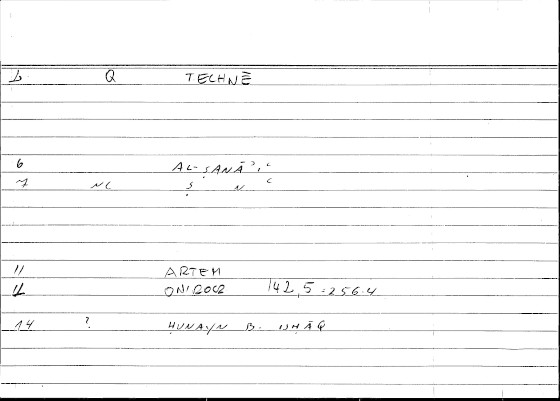 b Q TECHNĒ
6 AL-ṢANĀʾIʿ
7 NC Ṣ N ʿ
11 ARTEM
12 ONIROCR 142,5 = 256.4
14 ? ḤUNAYN B. ISḤĀQ